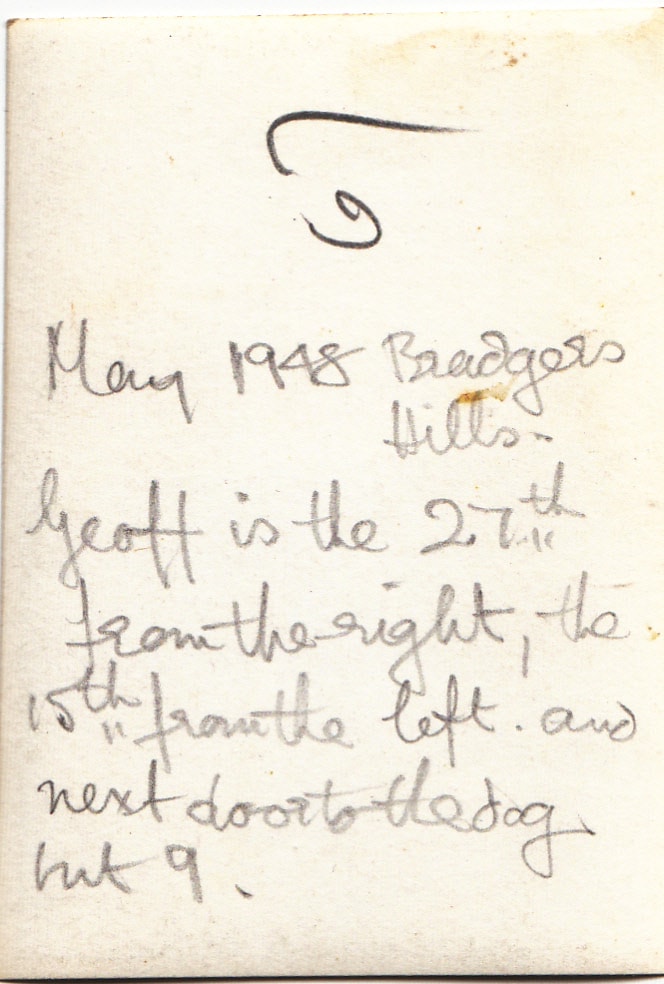 May 1948 Bradgers
Hills.
Geoff is the 27th
from the right, the
15th from the left. and
next door to the dog
but 9.